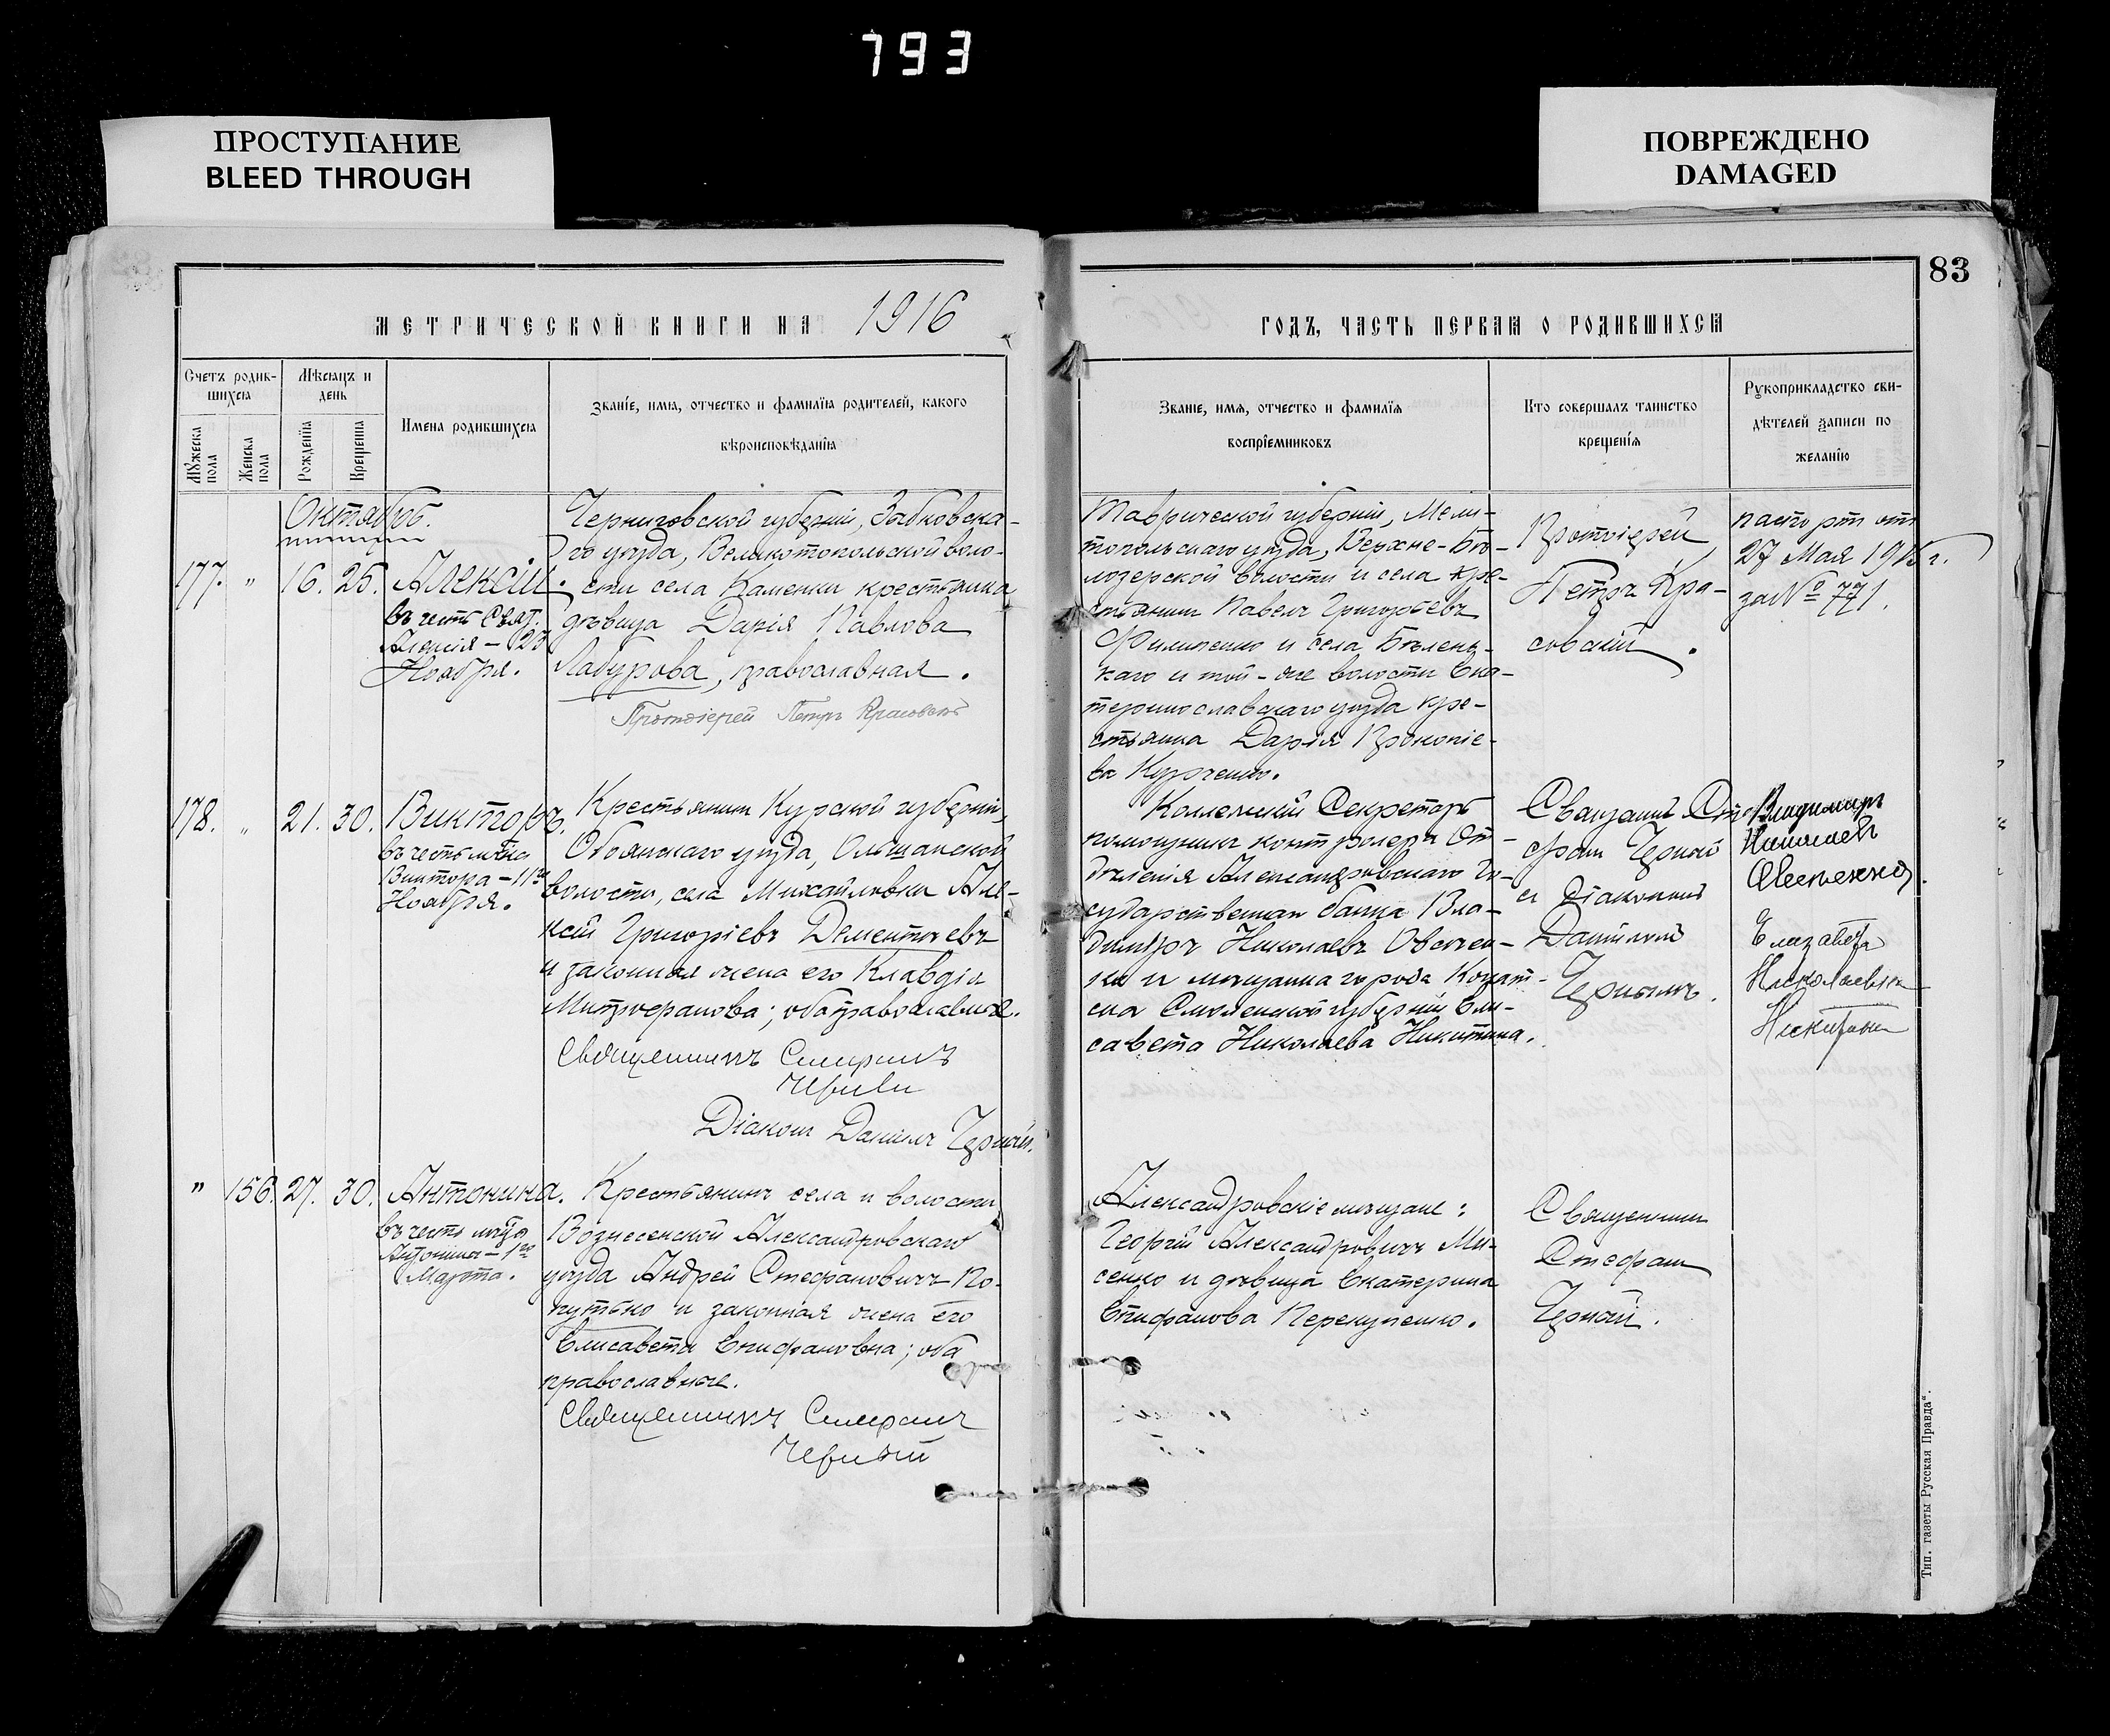 793
ПРОСТУПАНИЕ
BLEED THROUGH
ПОВРЕЖДЕНО
DAMAGED
83
МЕТРИЧЕСКОЙ КНИГИ НА 1916
ГОДЪ, ЧАСТЬ ПЕРВАЯ О РОДИВШИХСЯ
Счетъ родив-
шихся
Мѣсяцъ и
день
Мужеска
пола
Женска
пола
Рожденія
Крещенія
Имена родившихся
Званіе, имя, отчество и фамилія родителей, какого
вѣроисповѣданія
Званіе, имя, отчество и фамилія
воспріемниковъ
Кто совершалъ таинство
крещенія
Рукоприкладство сви-
дѣтелей записи по
желанію
Октябрь.
177. " 16. 25. Алексій.
въ честь Свят.
Алексія – 23
Ноября.
Черниговской губерніи,
го уѣзда, Великотопольской воло-
сти села Каменки крестьянка
дѣвица Дарія Павлова
Лабурова, православная.
Протоіерей Петръ Красовскій
Таврической губерніи, Мели-
топольскаго уѣзда, Верхне-Бѣ-
лозерской волости и села кре-
стьянинъ Павелъ Григорьевъ
Филипенко и села Бѣлень-
каго и той-же волости Ека-
теринославскаго уѣзда кре-
стьянка Дарія Прокопіе-
ва Курченко.
Протоіерей
Петръ Кра-
совскій.
паспортъ отъ
27 Мая 1915 г.
за № 771.
178. " 21. 30. Викторъ.
въ честь мчка
Виктора – 11го
Ноября.
Крестьянинъ Курской губерніи,
Обоянскаго уѣзда, Ольшанской
волости, села Михайловки Але-
ксій Григоріевъ Дементьевъ
и законная жена его Клавдія
Митрофанова; оба православные.
Священникъ Стефанъ
Черный
Діаконъ Даніилъ Черный.
Коллежскій Секретарь
помощникъ контролера От-
дѣленія Александровскаго Го-
сударственнаго банка Вла-
диміръ Николаевъ Овсеен-
ко и мѣщанка города
Смоленской губерніи Ели-
савета Николаева Никитина.
Священникъ Сте-
фанъ Черный
съ діакономъ
Даніиломъ
Чернымъ.
Владиміръ
Николаевъ
Овсеенко.
Елизавета
Николаевна
Никитина
" 156. 27. 30. Антонина.
въ честь мчцы
Антонины – 1го
Марта.
Крестьянинъ села и волости
Вознесенской Александровскаго
уѣзда Андрей Стефановичъ По-
путько и законная жена его
Елисавета Епифановна; оба
православные.
Священникъ Стефанъ
Черный
Александровскіе мѣщане:
Георгій Александровичъ Ми-
сенко и дѣвица Екатерина
Епифанова Перекупенко.
Священникъ
Стефанъ
Черный.
Тип. газеты Русская Правда".